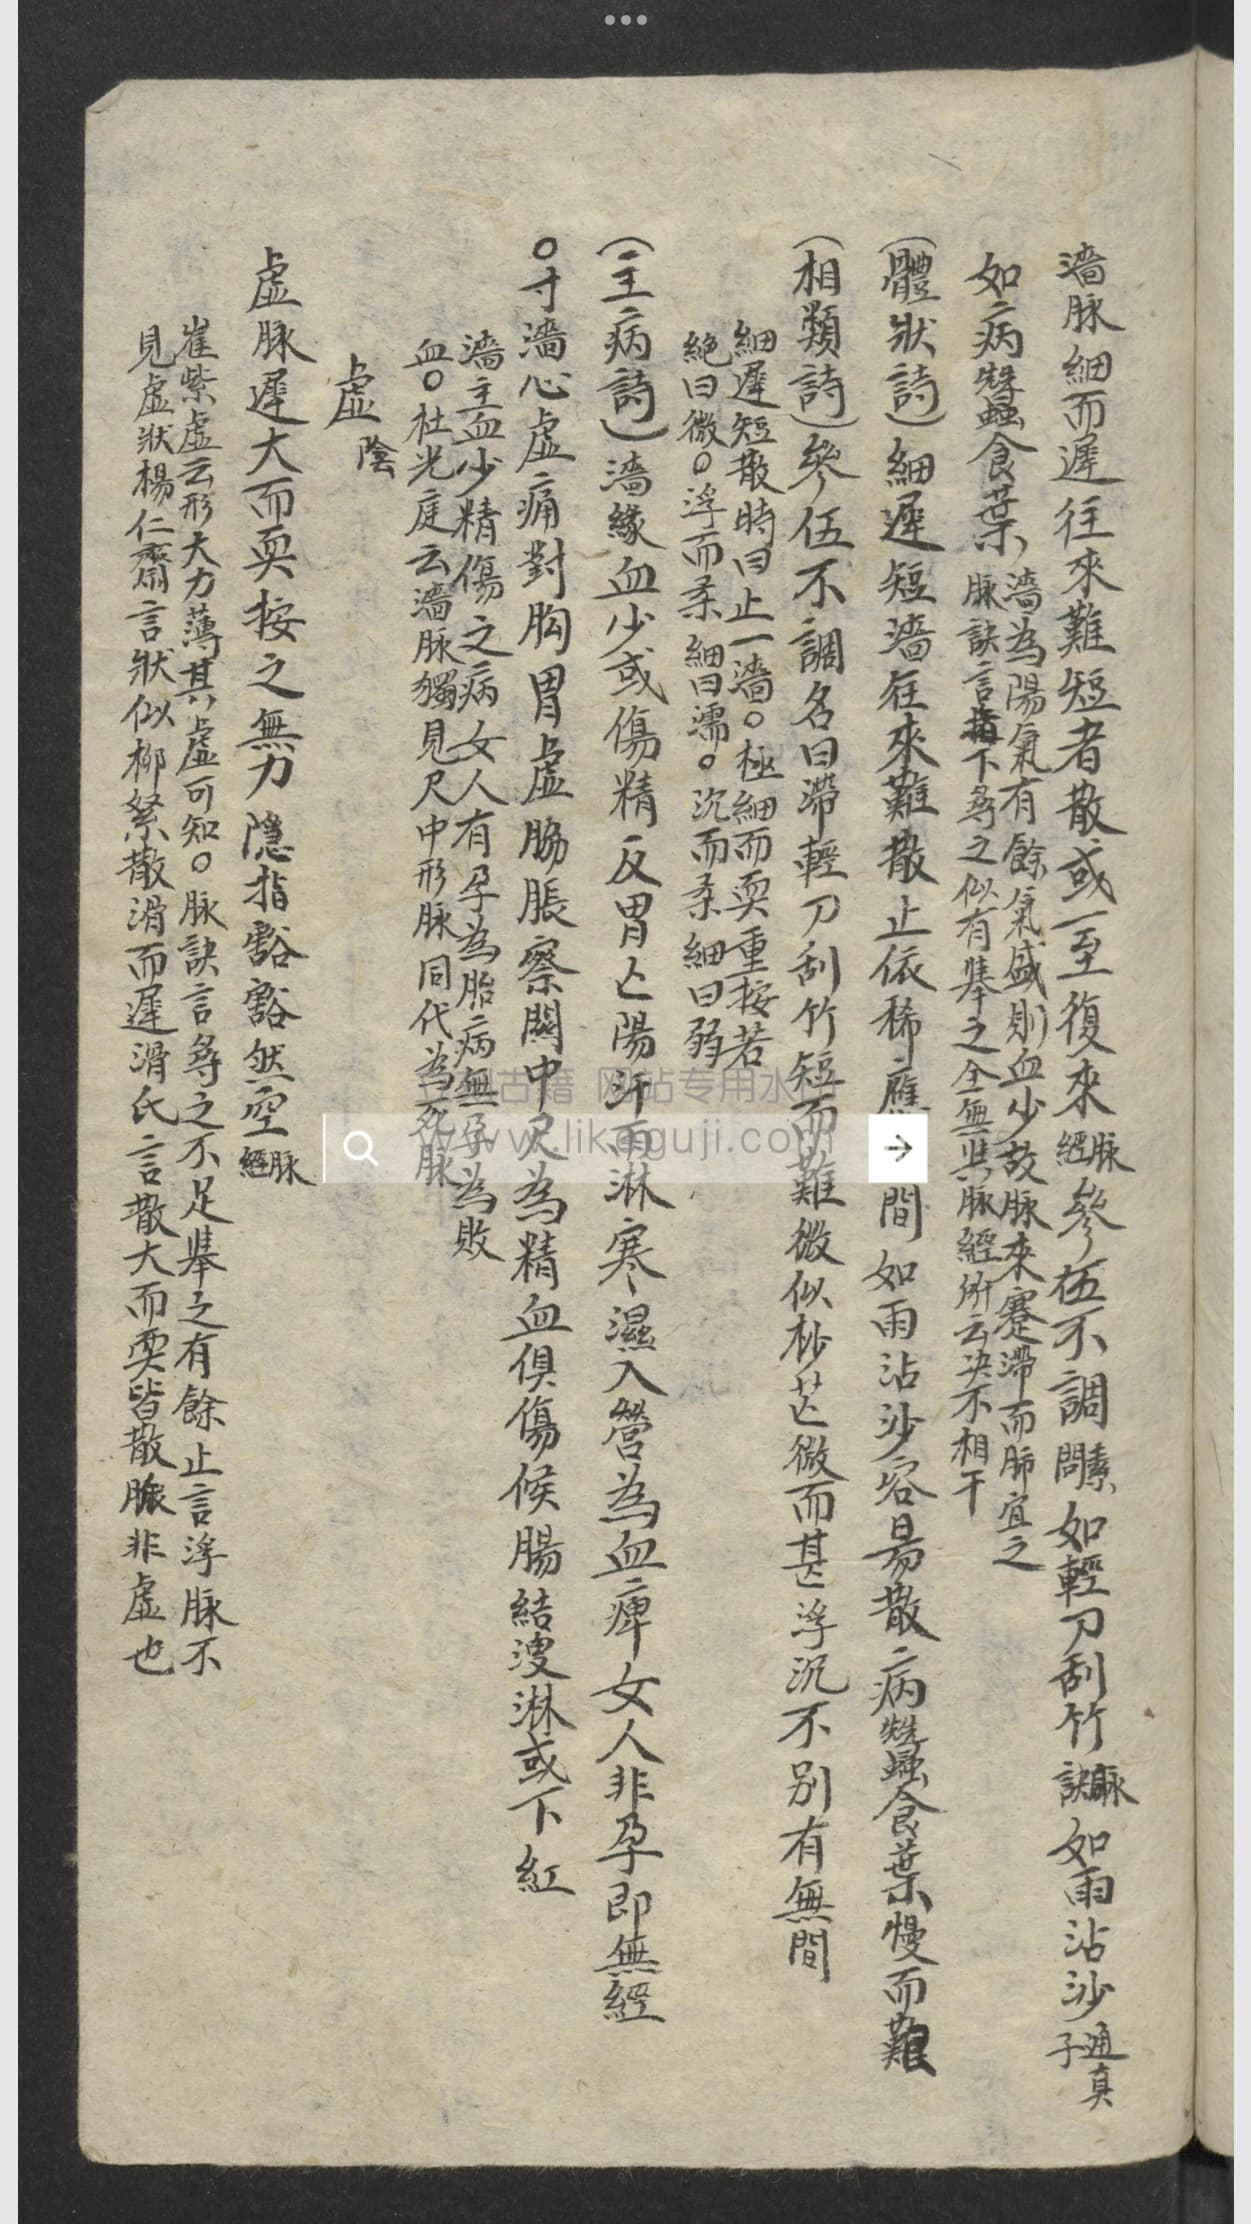 濇脉細而遲往來難短者散或一至復來脉經參伍不調素問如輕刀刮竹脉訣如雨沾沙通真子
如病蠶食葉
濇為陽氣有餘氣盛則血少故脉來蹇滯而肺宜之
脉訣言指下尋之似有舉之全無與脉經所云决不相干
(體狀詩)細遲短濇往來難散止依稀應 間如雨沾沙容易散病蠶食葉慢而難
(相類詩)參伍不調名曰滯輕刀刮竹短而難微似杪芒微而甚浮沉不別有無間
細遲短散時曰止一濇○極細而耎重按若
絶曰微○浮而柔細曰濡○沉而柔細曰弱
(主病詩)濇緣血少或傷精反胃亡陽汗雨淋寒濕入營為血痺女人非孕即無經
○寸濇心虛痛對胸胃虛脇脹察關中尺為精血俱傷候腸結溲淋或下紅
濇主血少精傷之病女人有孕為胎病無孕為敗
血○杜光庭云濇脉獨見尺中形脉同代為死脉
虛 陰
虛脉遲大而耎按之無力隱指豁豁然空脉經
崔紫虛云形大力薄其虛可知○脉訣言尋之不足舉之有餘止言浮脉不
見虛狀楊仁齋言狀似柳絮散滑而遲滑氏言散大而耎皆散脉非虛也
古籍 网站专用水
www.likeguji.com